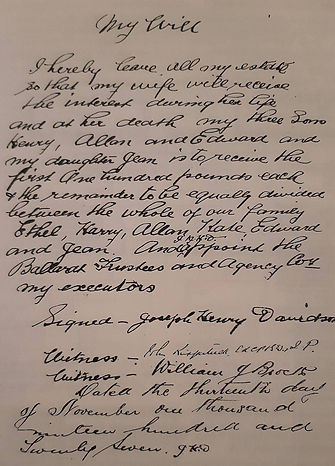 My Will
I hereby leave all my estate
so that my wife will receive
the interest during her life
and at her death my three sons
Henry, Allan and Edward and
my daughter Jean is to receive the
first One hundred pounds each
& the remainder to be equally divided
between the whole of our family
Ethel, Harry, Allan, Kate, Edward
and Jean And appoint the
Ballarat Trustees and Agency Coy
my executors
Signed - Joseph Henry Davidson
Witness - J.P.
Witness - William J Brock
Dated the thirteenth day
of November one thousand
nineteen hundred and
Twenty Seven. JHD